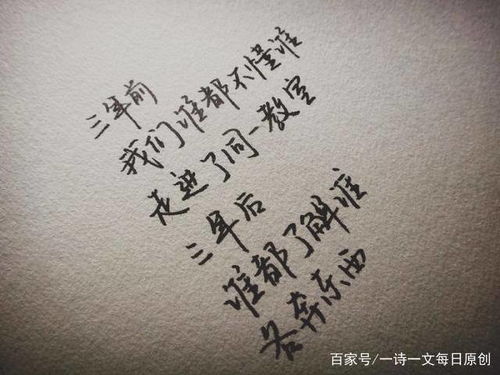 三年前
我们谁都不懂谁
走进了同一教室
三年后
谁都了解谁
各奔东西
百家号/一诗一文每日原创